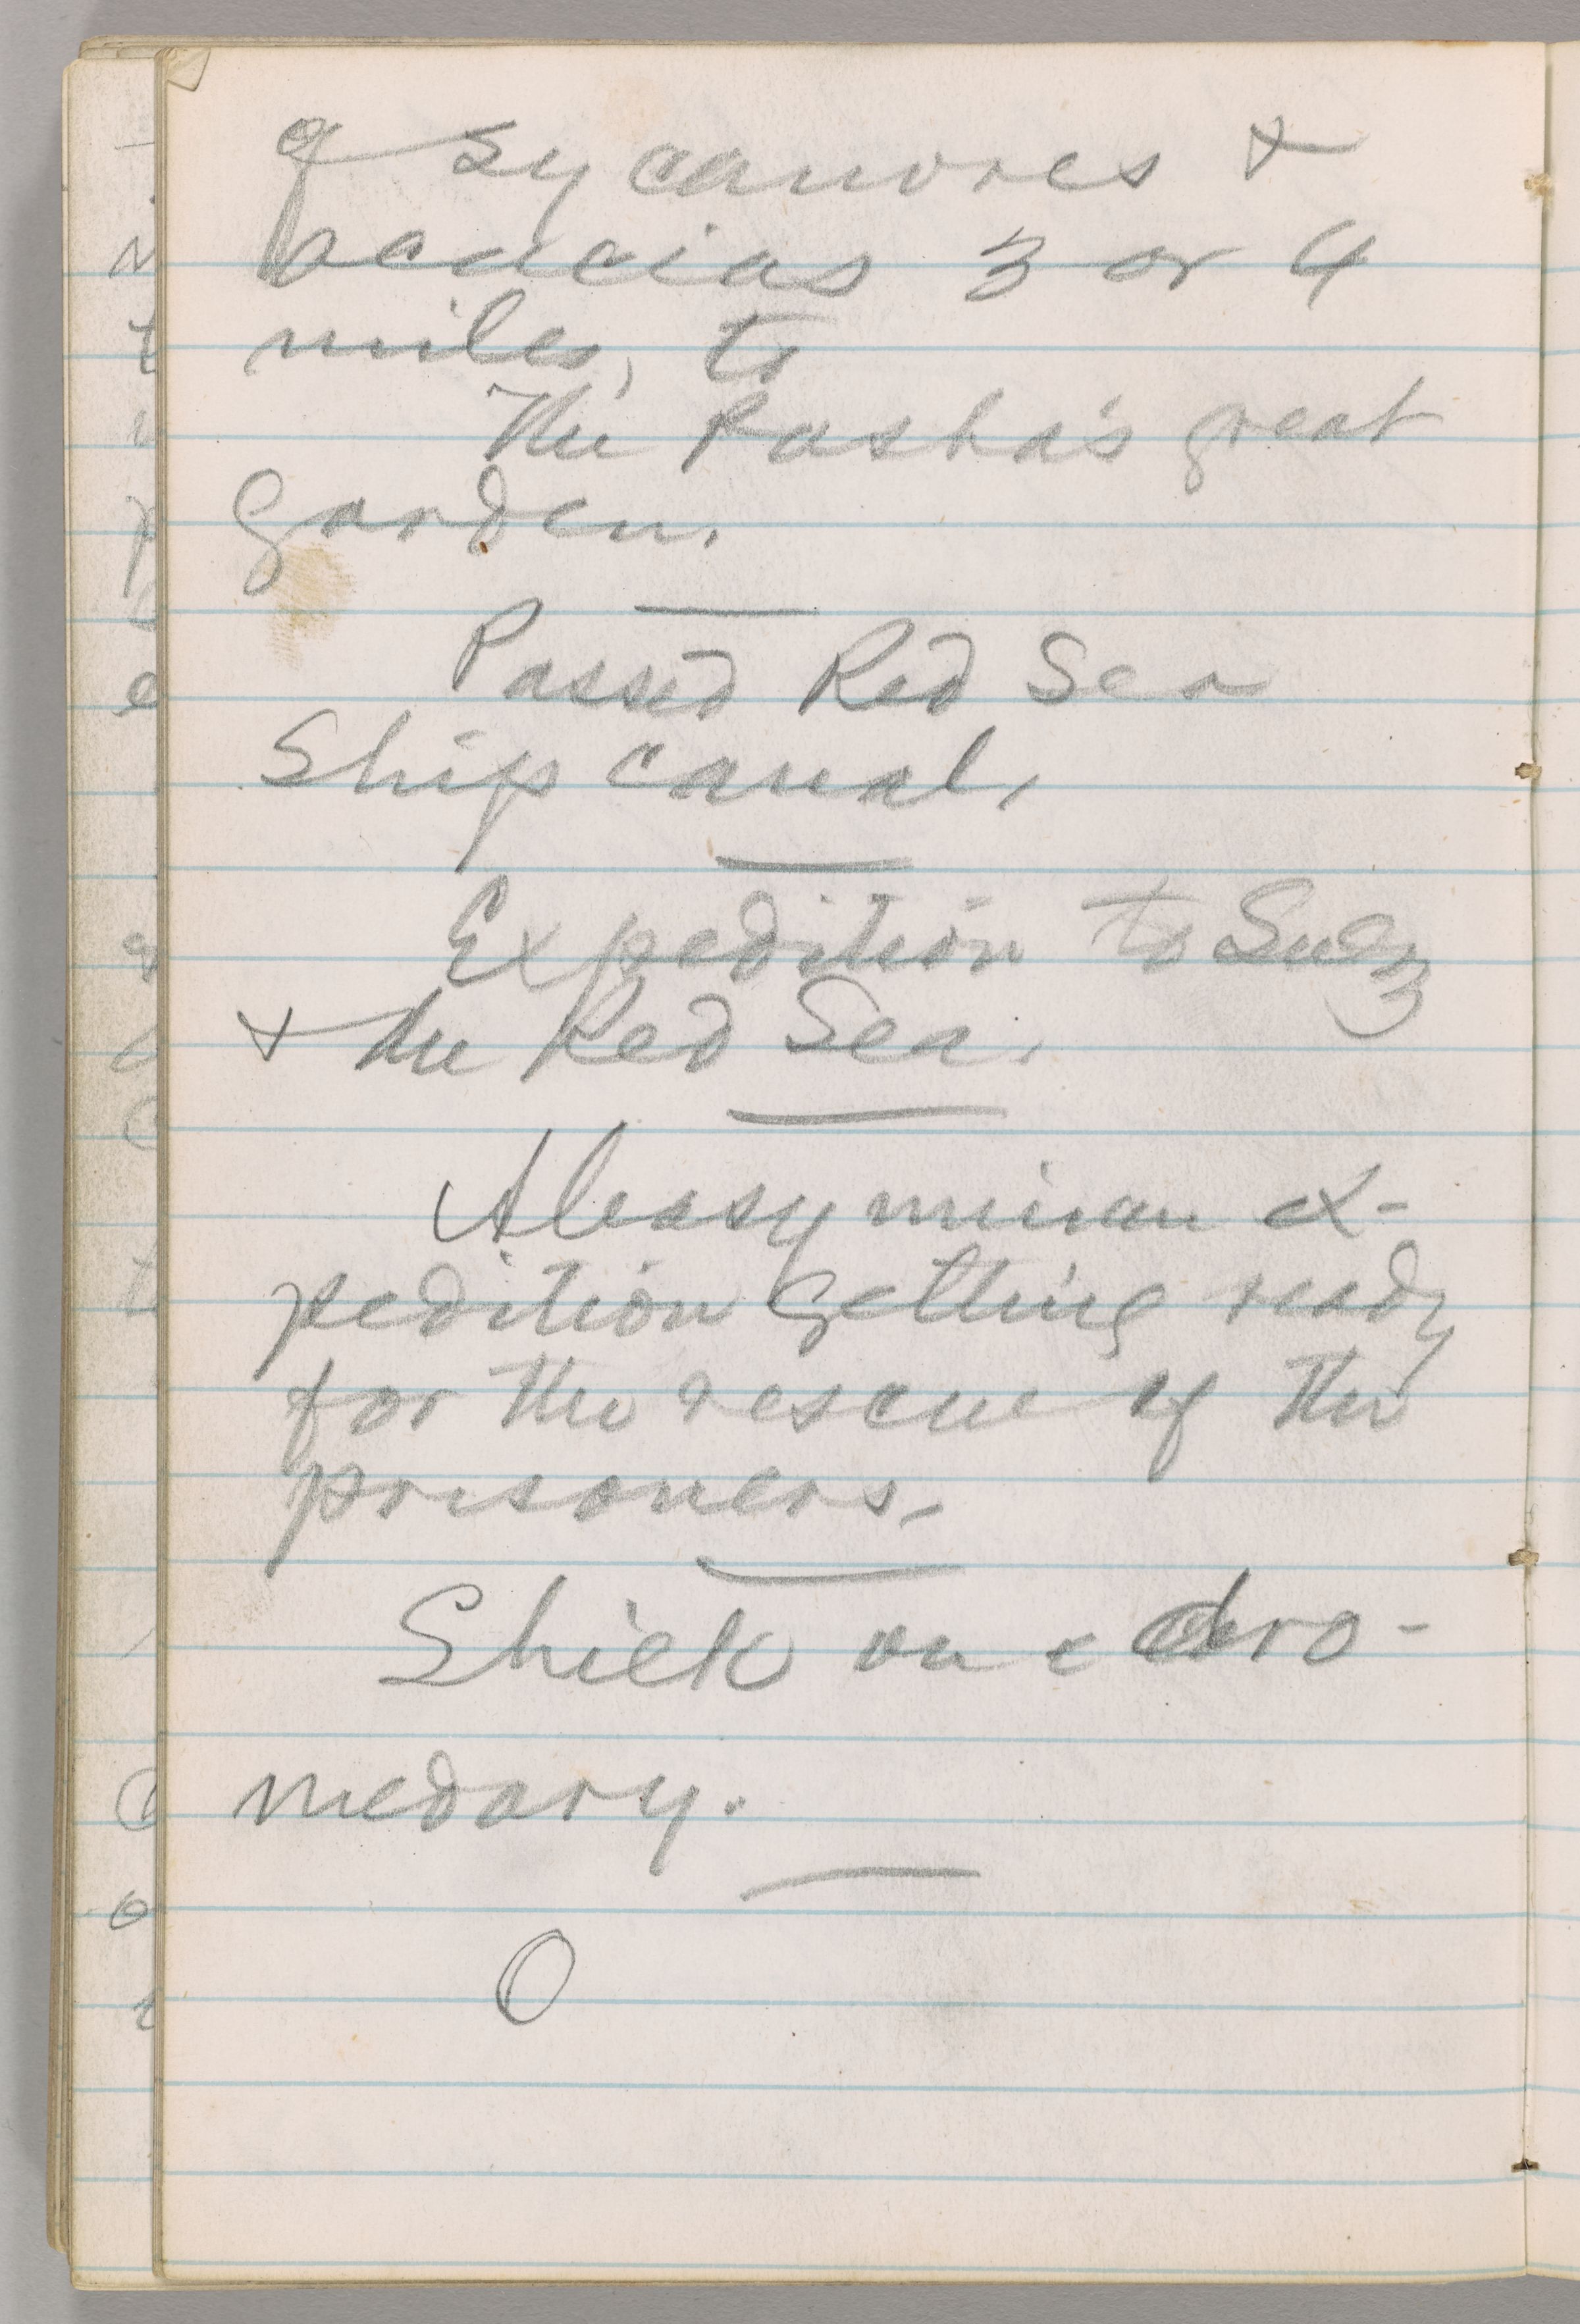 of sycamores &
acacias 3 or 4
miles, to
The Pasha's great
garden.
Passed Red Sea
Ship canal.
Expedition to Suez
& the Red Sea.
Abbasyminian ex-
pedition getting ready
for the rescue of the
prisoners.
Shiek on a dro-
medary.
O